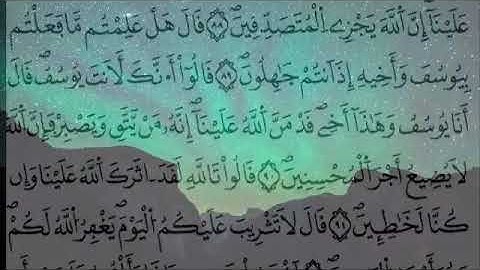 عَلَيْنَا إِنَّ اَ۬للَّهَ يَجْزِے اِ۬لْمُتَصَدِّقِينَۖ ٨٨ قَالَ هَلْ عَلِمْتُم مَّا فَعَلْتُم
بِيُوسُفَ وَأَخِيهِ إِذَ اَنتُمْ جَٰهِلُونَۖ ٨٩ قَالُوٓاْ أَ۟نَّكَ لَأَنتَ يُوسُفُۖ قَالَ
أَنَا يُوسُفُ وَهَٰذَآ أَخِےۖ قَدْ مَنَّ اَ۬للَّهُ عَلَيْنَآۖ إِنَّهُۥ مَنْ يَّتَّقِ وَيَصْبِرْ فَإِنَّ اَ۬للَّهَ
لَا يُضِيعُ أَجْرَ اَ۬لْمُحْسِنِينَۖ ٩٠ قَالُواْ تَاللَّهِ لَقَدَ اٰثَرَكَ اَ۬للَّهُ عَلَيْنَا وَإِن
كُنَّا لَخَٰطِـِٕينَۖ ٩١ قَالَ لَا تَثْرِيبَ عَلَيْكُمُ اُ۬لْيَوْمَۖ يَغْفِرُ اُ۬للَّهُ لَكُمْۖ